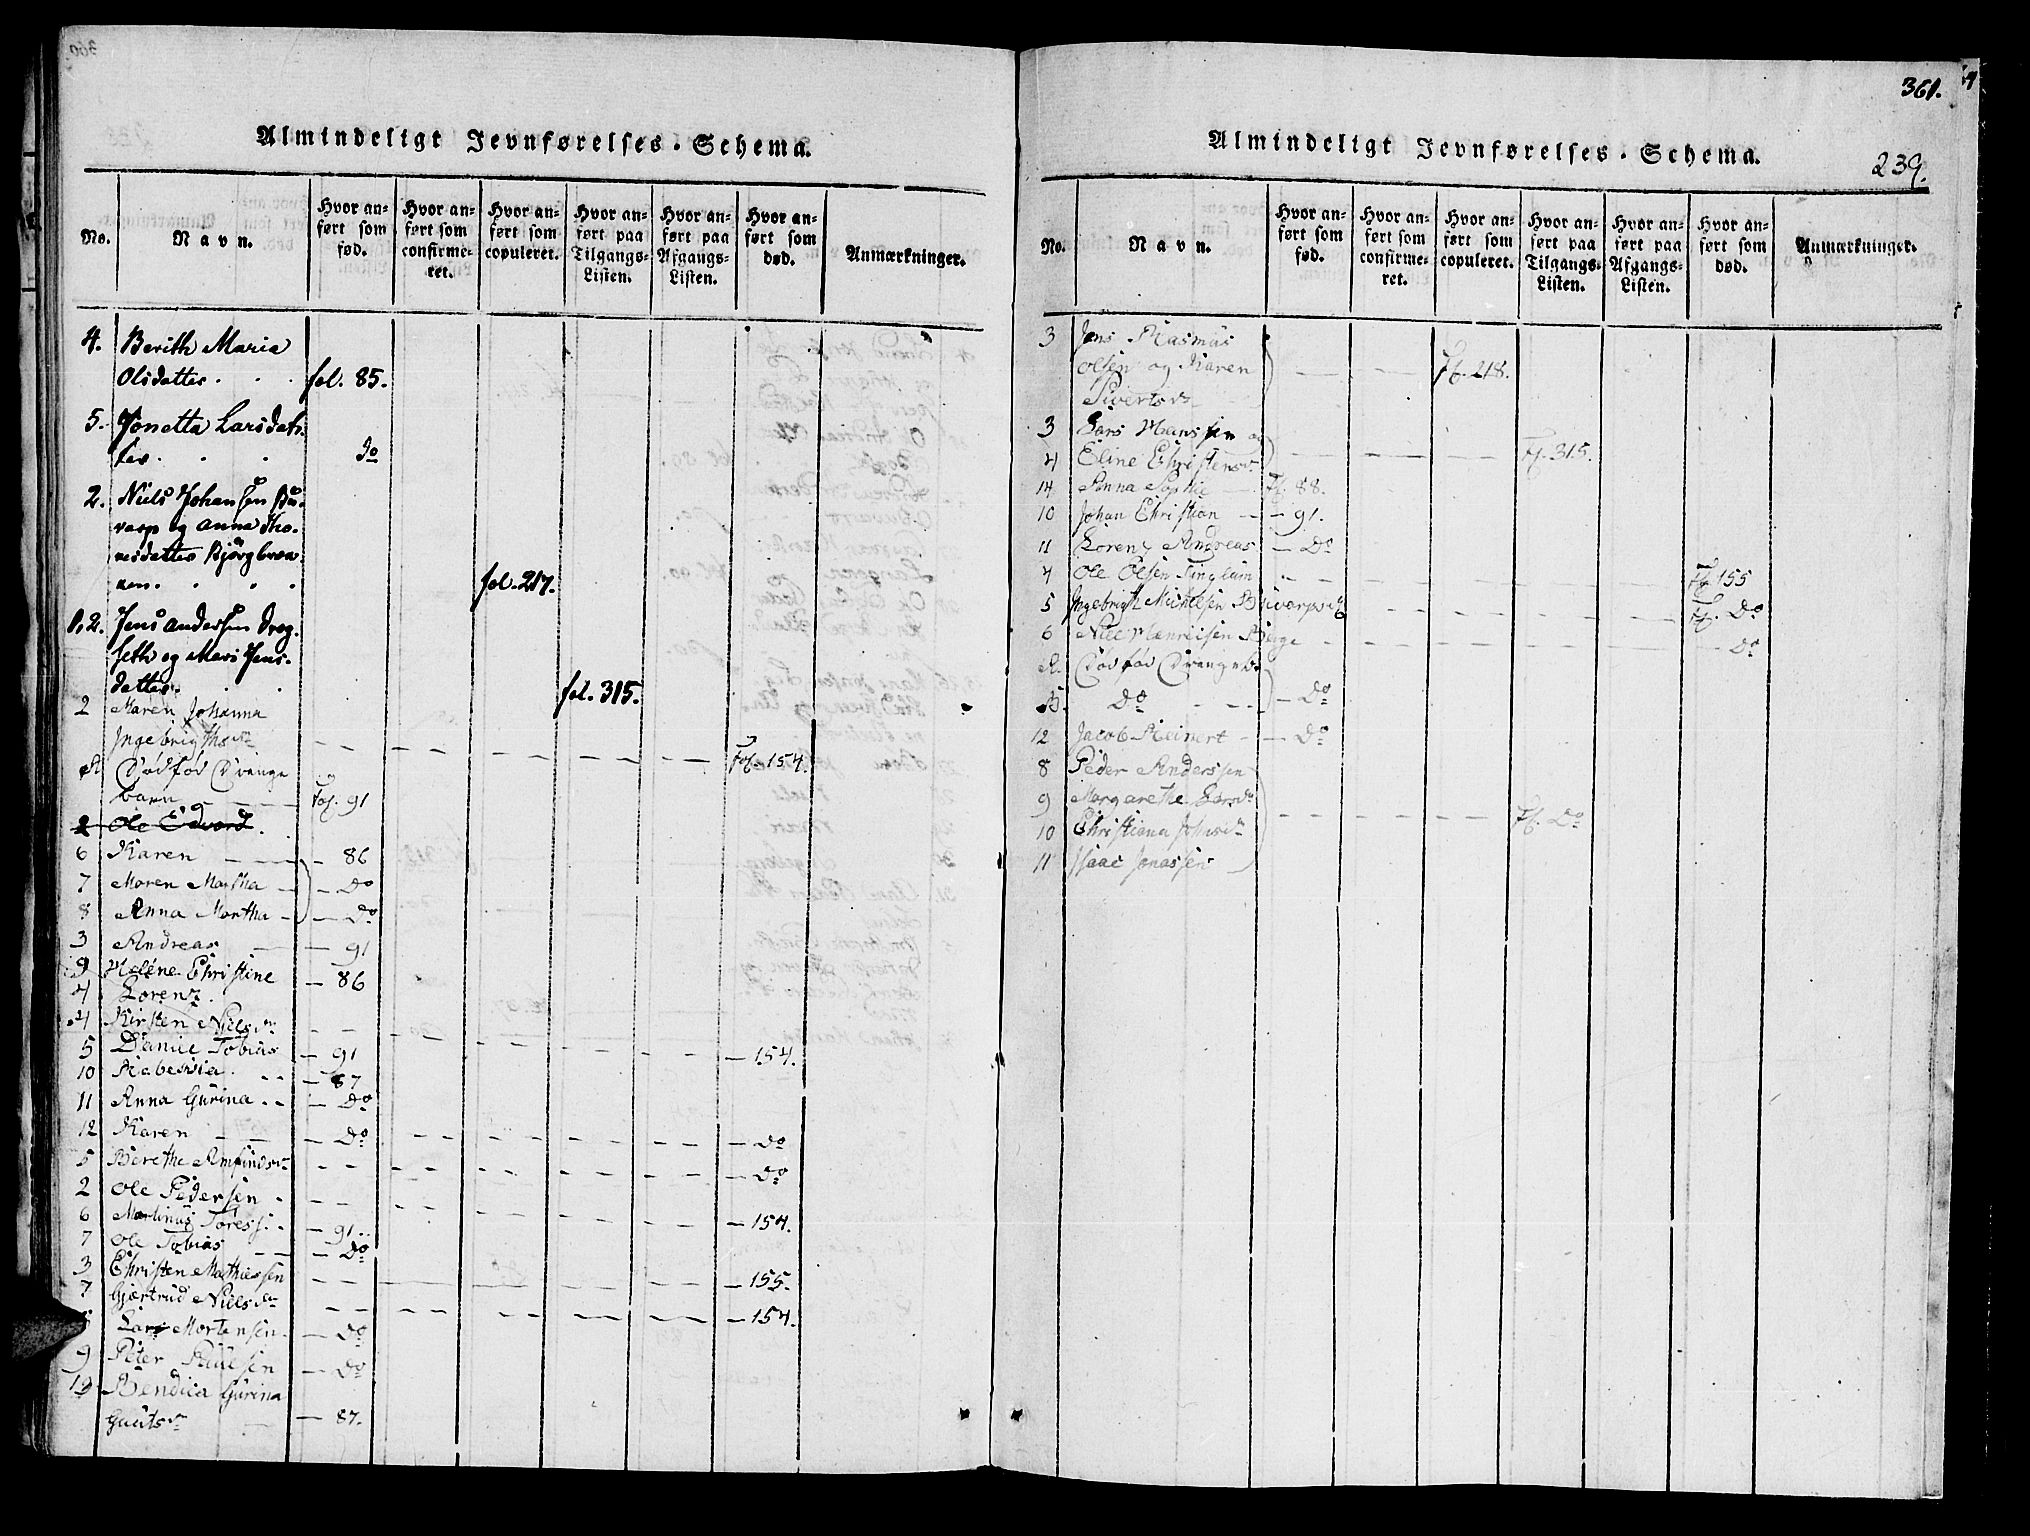 Almindeligt Jevnførelses-Schema.
No. Navn. Hvor anført som fød. Hvor anført som confirmeret. Hvor anført som copuleret. Hvor anført paa Tilgangs-Listen. Hvor anført paa Afgangs-Listen. Hvor anført som død. Anmærkninger.
4. Berith Maria
Olsdatter. . . fol. 85.
5. Jonetta Larsdat-
ter. . . do
2. Niels Johansen
og Anna Tho-
. . . fol. 217.
1,2. Jens Andersen Drag-
seth og Mari Jens-
datter. . . fol. 315.
2 Maren Johanna
Ingebrigthsdr — — — — — — Fol. 154.
A Dødfød Drænge
barn — — Fol. 91
2 Ole Edvard.
6 Karen — — — 86
7 Maren Martha — — Do
8 Anna Martha — — Do
3 Andreas — — 91
9 Helene Christine — 86
4 Lorenz.
4 Kirsten Nielsdr — —
5 Daniel Tobias — 91 — 154.
10 Rebekka. — 87
11 Anna Gurina — Do
12 Karen — — — Do — — — — — Do
5 Berethe — — — — — — — Do
2 Ole Pedersen — —
6 Martinus — 91 — 154.
7 Ole Tobias — — Do
3 Christen Mathiessen — — — — — — — 155.
7 Gjertrud Nielsdr — — — — — — — 154.
Lars Mortensen — Do
9 Peter Paulsen — Do
10 Bendica Gurina
— 87.
361.
239.
Almindeligt Jevnførelses-Schema.
No. Navn. Hvor anført som fød. Hvor anført som confirmeret. Hvor anført som copuleret. Hvor anført paa Tilgangs-Listen. Hvor anført paa Afgangs-Listen. Hvor anført som død. Anmærkninger.
3 Jens Rasmus
Olsen og Karen — — — Ff. 218.
Sivertsdr
3 Lars Hanssen og
4 Eline Christensdr — — — — Ff. 315.
14 Anna Sophie — Ff. 88.
10 Johan Christian — — 91.
11 Lorenz Andreas — Do
4 Ole Olsen — — — — — — Ff. 155
5 Ingebrigt — — — — — — Ff. Do
6 — — — — — — — Do
A. Dødfød Drængeb.
B. Do — — — Do
12 Jacob Reinert — — Do
8 Peder Anderssen
9 Margarethe Larsdr
10 Christiana — — — — Ff. Do
11 Isaac Jonassen